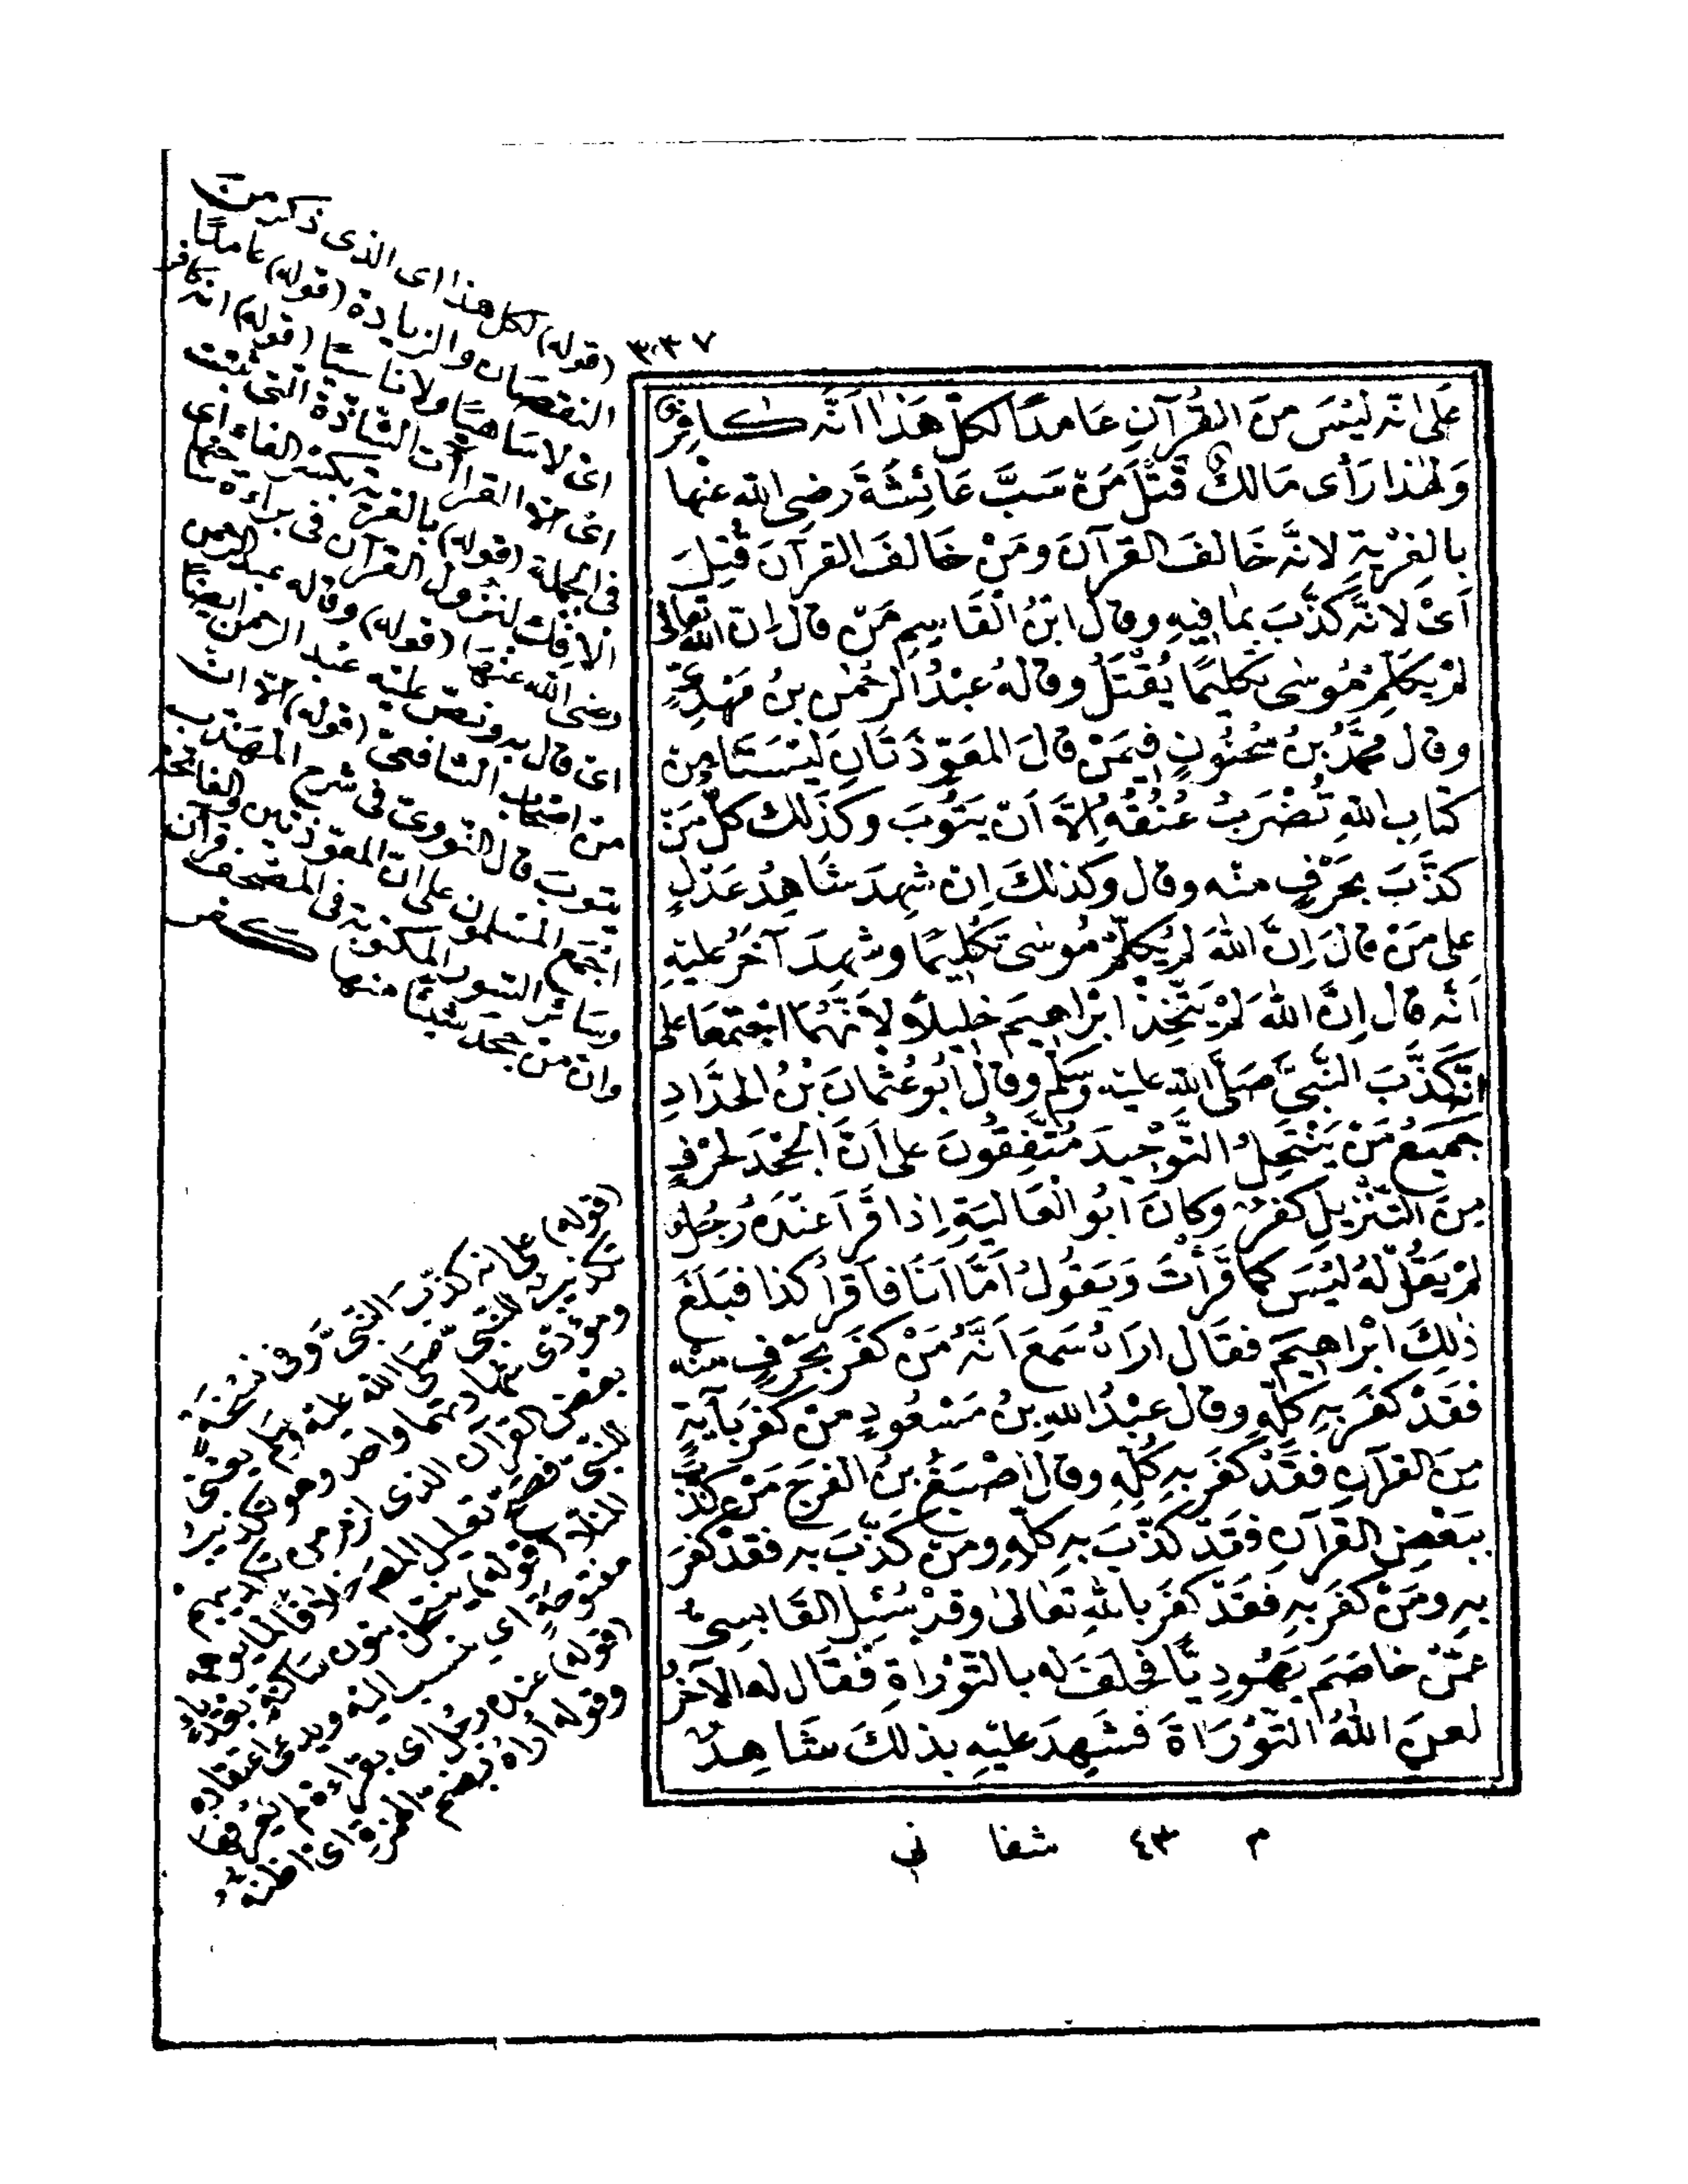 ٣٣٧
عَلَى انَّه لَيْسَ مِنَ القُرآنِ عَامدًا لكلّ هَذا اَنّه كافِرٌ
وَلِهٰذا رَأى مَالكٌ قَتْلَ مَنْ سَبَّ عَائِشَةَ رَضِى الله عنْها
بالفِرْيَةِ لانَّه خَالَفَ القرآنَ ومَنْ خَالفَ القرآنَ قُتِلَ
اَىْ لانَّه كَذَّبَ بما فيهِ وقال ابْنُ الْقَاسِمِ مَنْ قال اِنّ اللهَ تعالى
لمْ يُكلّمْ مُوسٰى تكليمًا يُقْتَلُ وقالهُ عبْدُ الرحْمٰن بنُ مَهْدِىٍّ
وقال محمّدُ بنُ سُحْنُونٍ فيمَنْ قالَ المعَوّذتَانِ ليْسَتَا مِنْ
كتابِ اللهِ تُضْرَبُ عُنُقُهُ اِلاَّ اَنْ يَتُوبَ وكذَلك كلُّ مَنْ
كذَّبَ بحَرْفٍ منْه وقال وكذلكَ اِن شهِدَ شاهِدُ عَدْلٍ
على مَنْ قالَ اِنَّ اللهَ لمْ يُكلّمْ مُوسٰى تكْليمًا وشهِدَ آخرُ عليْهِ
اَنّه قال اِنَّ اللهَ لَمْ يَتّخِذْ ابْراهيمَ خليلاً لاَنّهُمَا اجْتمَعَا على
انّه كَذَّبَ النّبىَّ صَلّى الله عليْه وسَلّم وقال ابُو عُثمانَ بْنُ الحَدَّادِ
جميعُ مَنْ يَنْتَحِلُ التَّوْحيدَ مُتّفِقُونَ على اَنّ الْجَحْدَ لحرْفٍ
مِنَ التّنْزيلِ كفْرٌ وكانَ ابُو الْعَاليَةِ اِذا قَرَأ عنْدَهُ رَجُلٌ
لمْ يَقُلْ لهُ ليْسَ كما قَرَأْتَ وَيَقُولُ اَمَّا اَنَا فاَقْرأُ كذا فبَلغَ
ذٰلِكَ ابْراهيمَ فقَال ارَاهُ سَمعَ اَنَّهُ مَنْ كفَر بحَرْفٍ منْه
فقَدْ كفَرَ بِهِ كلّهِ وقال عبْدُ اللهِ بنُ مَسْعُودٍ منْ كفرَ بآيَةٍ
مِنَ القرآنِ فقَدْ كفَر بِهِ كُلِّهِ وقال اَصْبَغُ بنُ الفرَجِ مَنْ كذَّبَ
ببَعْضِ القرآنِ فقَدْ كذَّبَ به كلّهِ ومَنْ كَذَّبَ به فقدْ كفرَ
بهِ ومَنْ كفرَ بِهِ فقَدْ كفَرَ باللهِ تعَالىٰ وقدْ سُئِلَ القَابِسىُّ
عَمّنْ خاصَمَ يَهُوديًّا فحلفَ له بالتوْرَاةِ فقَال له الآخرُ
لعَنَ اللهُ التّوْرَاةَ فشَهِدَ عليْهِ بذلكَ شَاهِدٌ
م ٤٣ شفا نى
(قوله) لكل هذا اى الذى ذكر من
النقصان والزيادة (قوله) عامدًا
اى لا ساهيًا ولا ناسيًا (قوله) انه كافر
اى القراآت الشاذة التى ثبتت
فى الجملة (قوله) بالفرية بكسر الفاء اى
الافك لنزول القرآن فى براءة ساحتها
رضى الله عنها (قوله) وقاله عبد الرحمن
اى قال به ونص عليه عبد الرحمن ايضًا
من اصحاب الشافعى (قوله) الا ان
يتوب قال النووى فى شرح المهذب
اجمع المسلمون على ان المعوذتين والفاتحة
وسائر السور المكتوبة فى المصحف قرآن
وان من جحد شيئًا منها كفر
(قوله) على انه كذّب النبى وفى نسخة
تكذيبه للنبى صلى الله عليه وسلم يعنى
ومؤدى شهادتهما واحد وهو تكذيب
بعض القرآن الذى
النبى فصح تعليل المص خلافا لما
(قوله) ينتحل بنون ساكنة بعد
مفتوحة اى ينسب اليه ويدعى اعتقاده
(قوله) عنده رجل اى بقراءة لم يعرفها
وقوله اراه بضم الهمزة اى اظنه